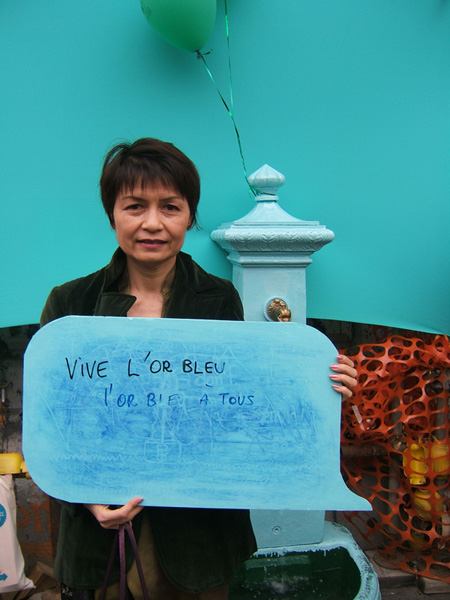 VIVE L'OR BLEU
l'OR BLEU À TOUS